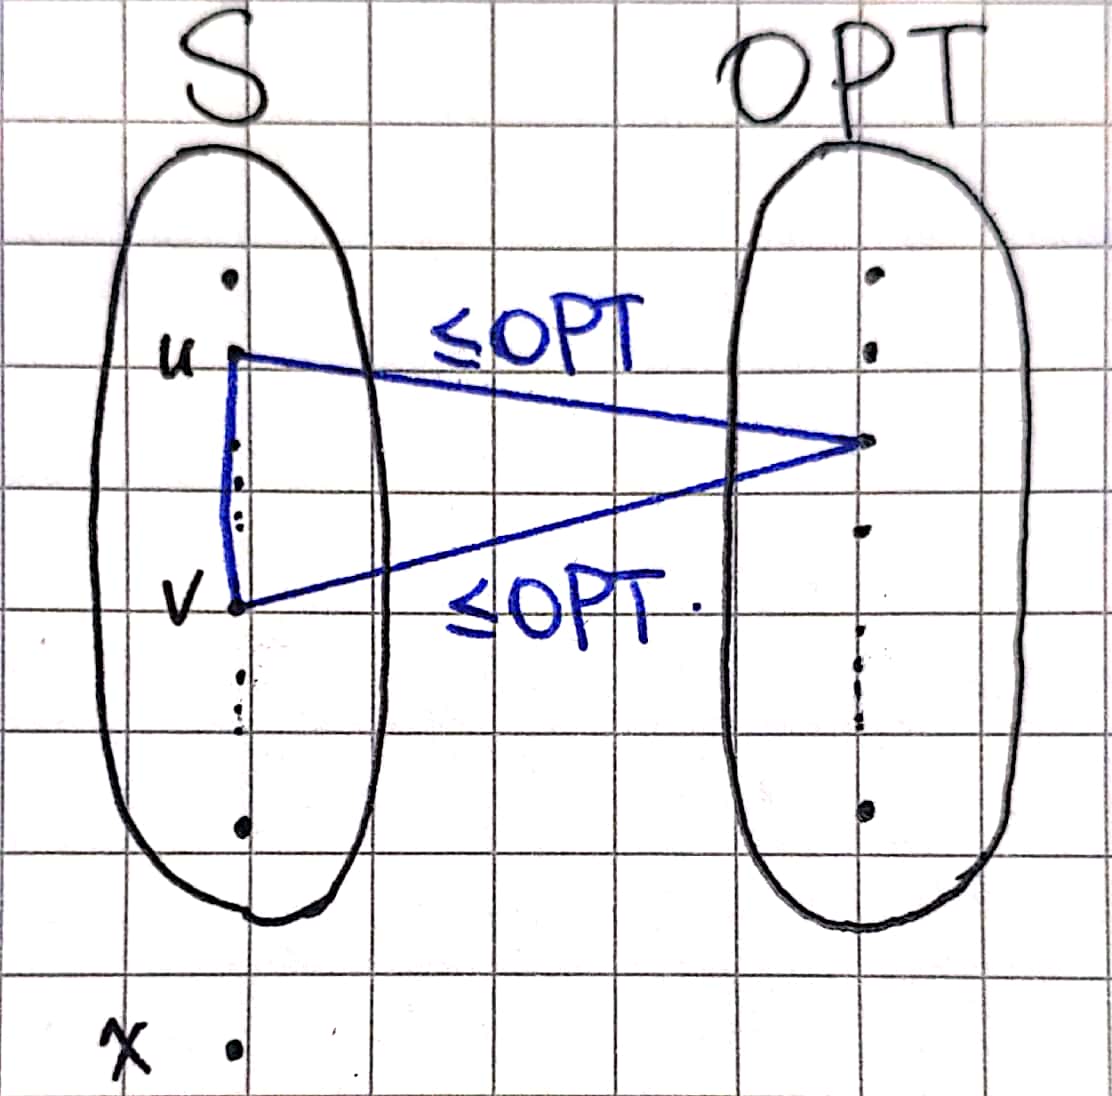 S OPT
≤OPT
u
v
≤OPT.
x